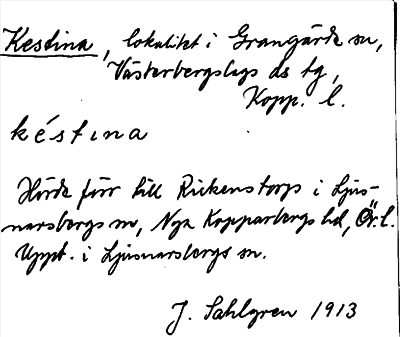 Kestina, lokalitet i Grangärde sn,
Västerbergslags ds tg,
Kopp. l.
késtina
Hörde förr till Rickenstorp i Ljus-
narsbergs sn, Nya Kopparbergs hd, Ör. l.
Uppt. i Ljusnarsbergs sn.
J. Sahlgren 1913